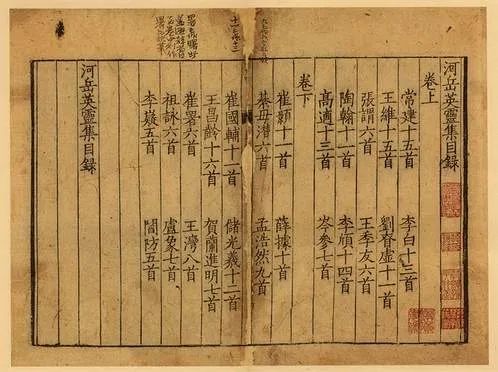 河岳英靈集目録
卷上
常建十五首　李白十三首
王維十五首　劉眘虛十一首
張謂六首　王季友六首
陶翰十一首　李頎十四首
高適十三首　岑參七首
卷下
崔顥十一首　薛據十首
綦毋潛六首　孟浩然九首
崔國輔十一首　儲光羲十二首
王昌齡十六首　賀蘭進明七首
崔署六首　王灣八首
祖詠六首　盧象七首
李嶷五首　閻防五首
河岳英靈集目録